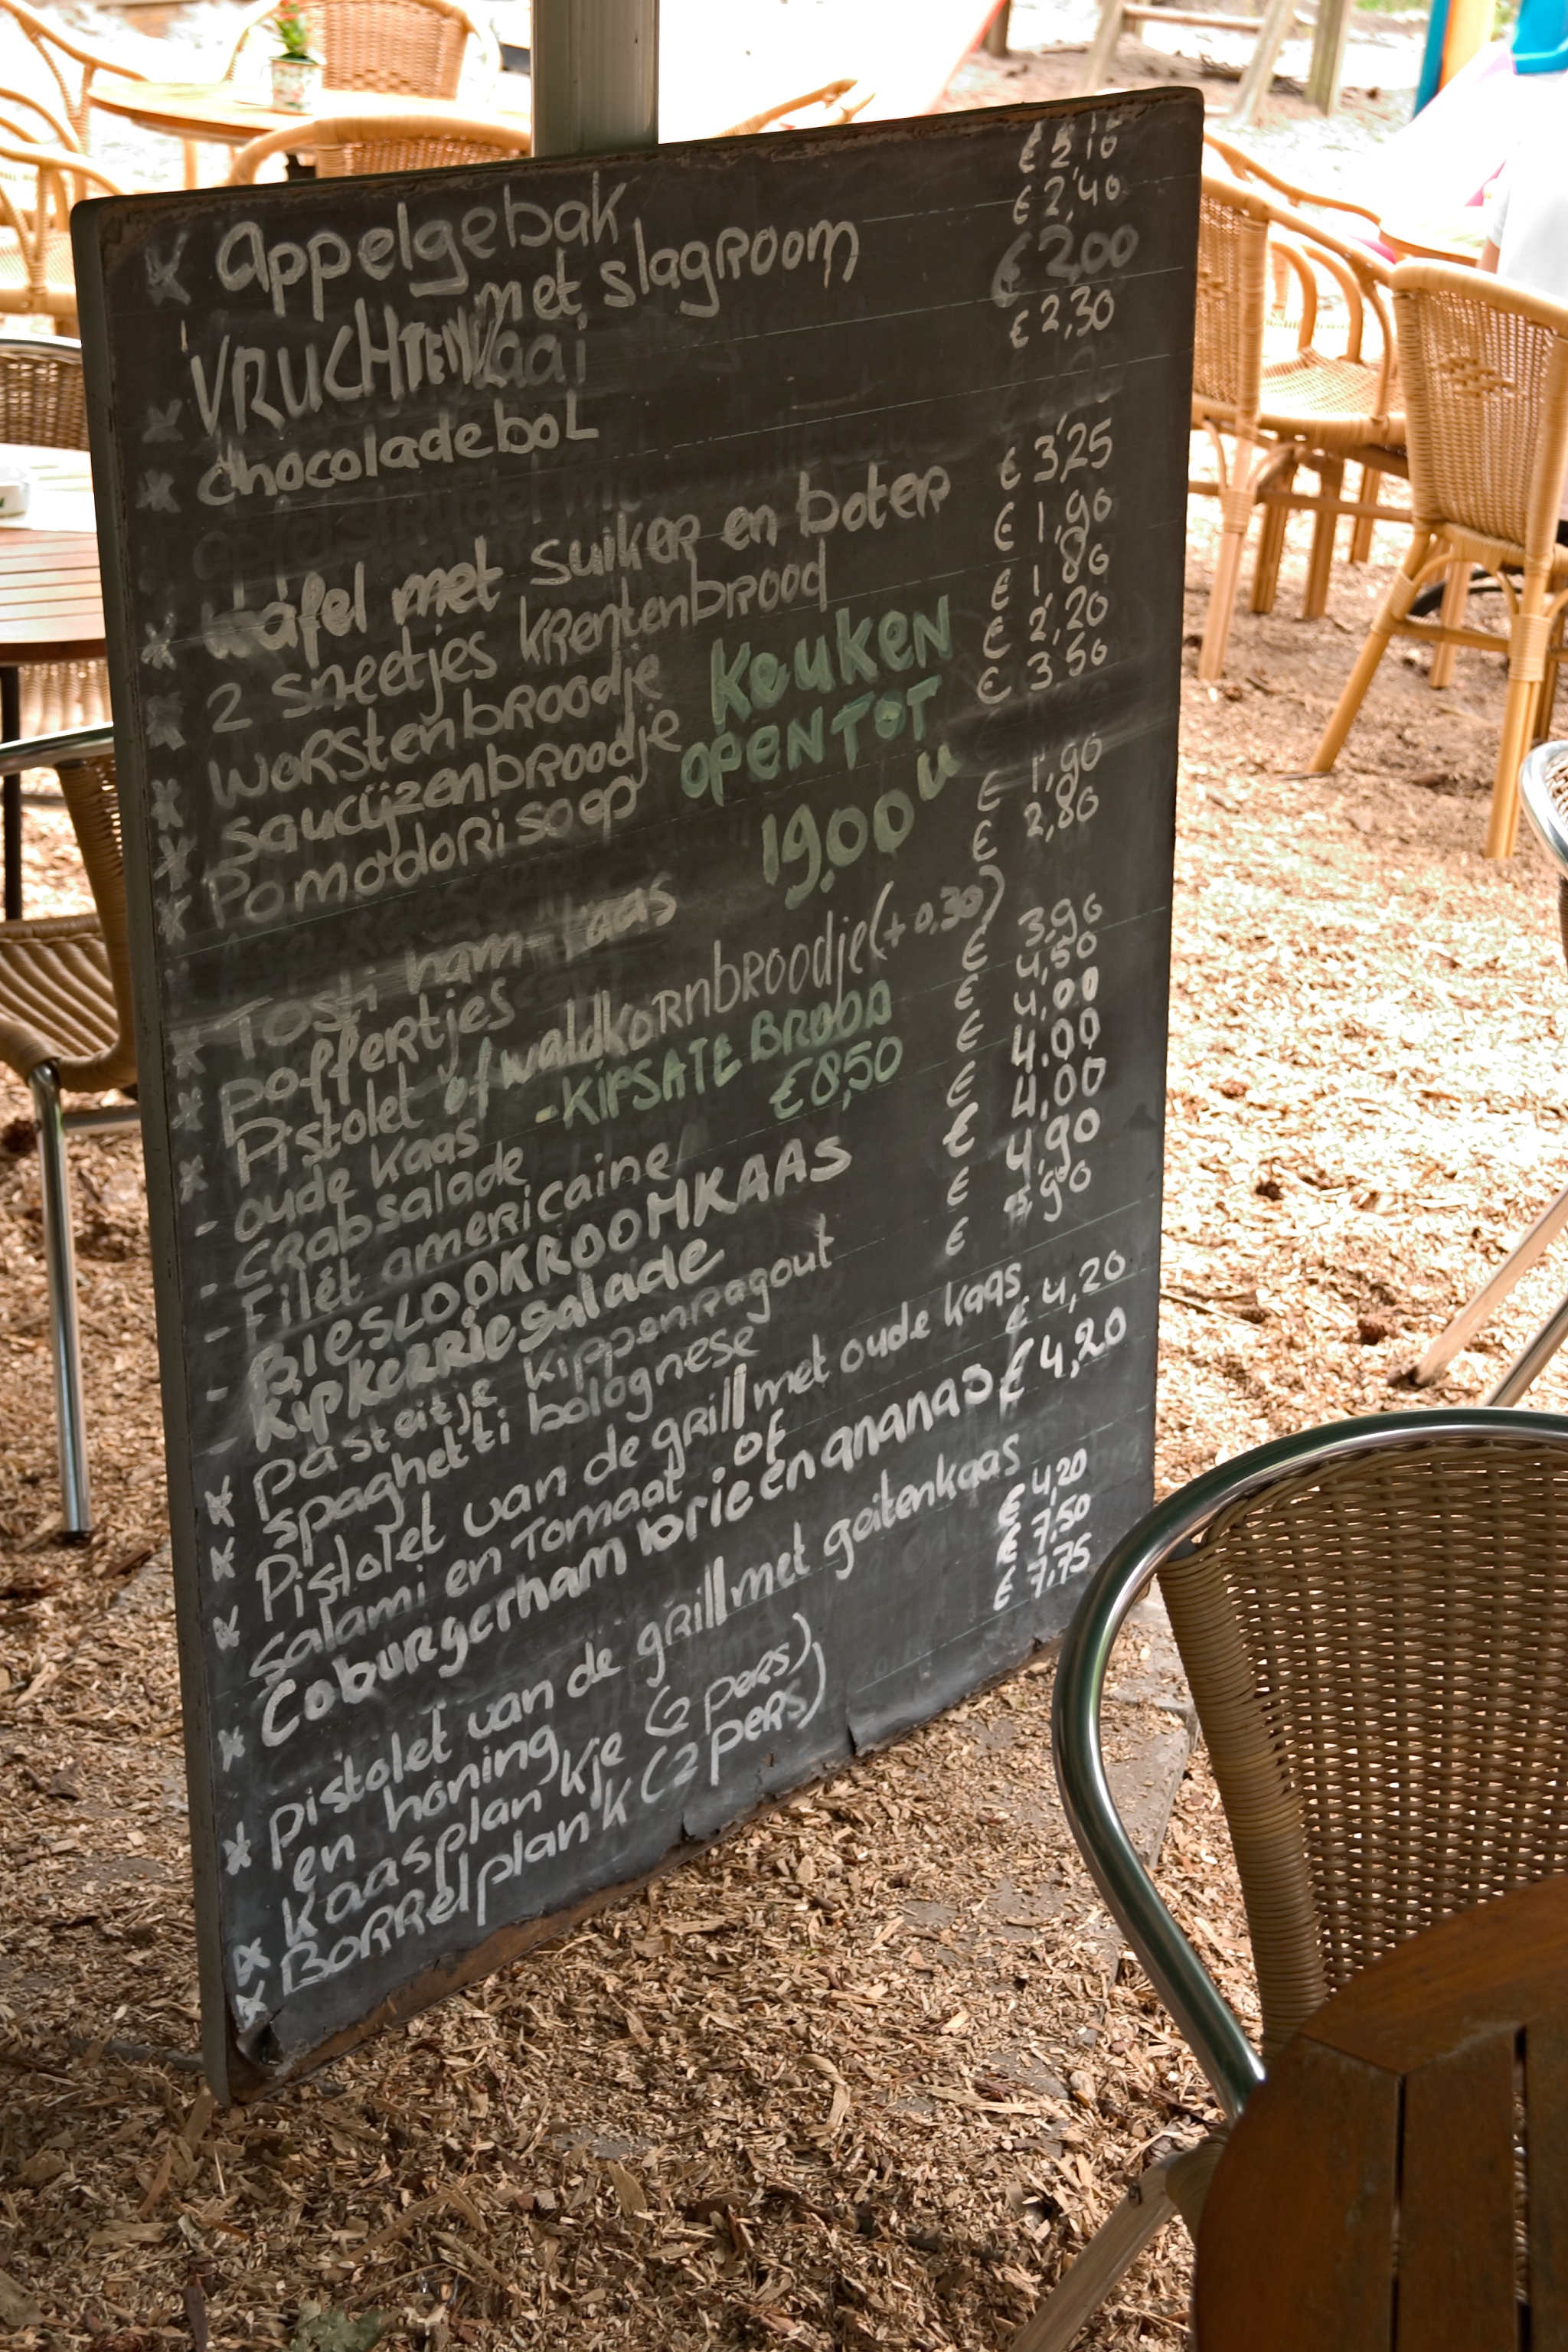 * Appelgebak € 2,10
met slagroom € 2,40
* VRUCHTENVlaai € 2,00
* chocoladebol € 2,30
* wafel met suiker en boter € 3,25
* 2 sneetjes krentenbrood € 1,90
* worstenbroodje € 1,80
* saucijzenbroodje € 2,20
* Pomodori soep € 3,50
KEUKEN
OPEN TOT
19.00 u
* Tosti ham-kaas € 1,90
* Poffertjes € 2,80
* Pistolet of waldkornbroodje (+ 0,30)
- oude kaas € 3,90
- Crabsalade € 4,50
- KIPSATE BROOD
€ 8,50
- Filét americaine € 4,00
- BIESLOOKROOMKAAS € 4.00
Kipkerriesalade € 4,00
* pasteitje kippenragout € 4,90
* spaghetti bolognese € ,90
* Pistolet van de grill met oude kaas, € 4,20
salami en Tomaat of
* Coburgerham brie en ananas € 4,20
* pistolet van de grill met geitenkaas
en honing € 4,20
* Kaasplankje (2 pers) € 7.50
* Borrelplank (2 pers) € 7.75